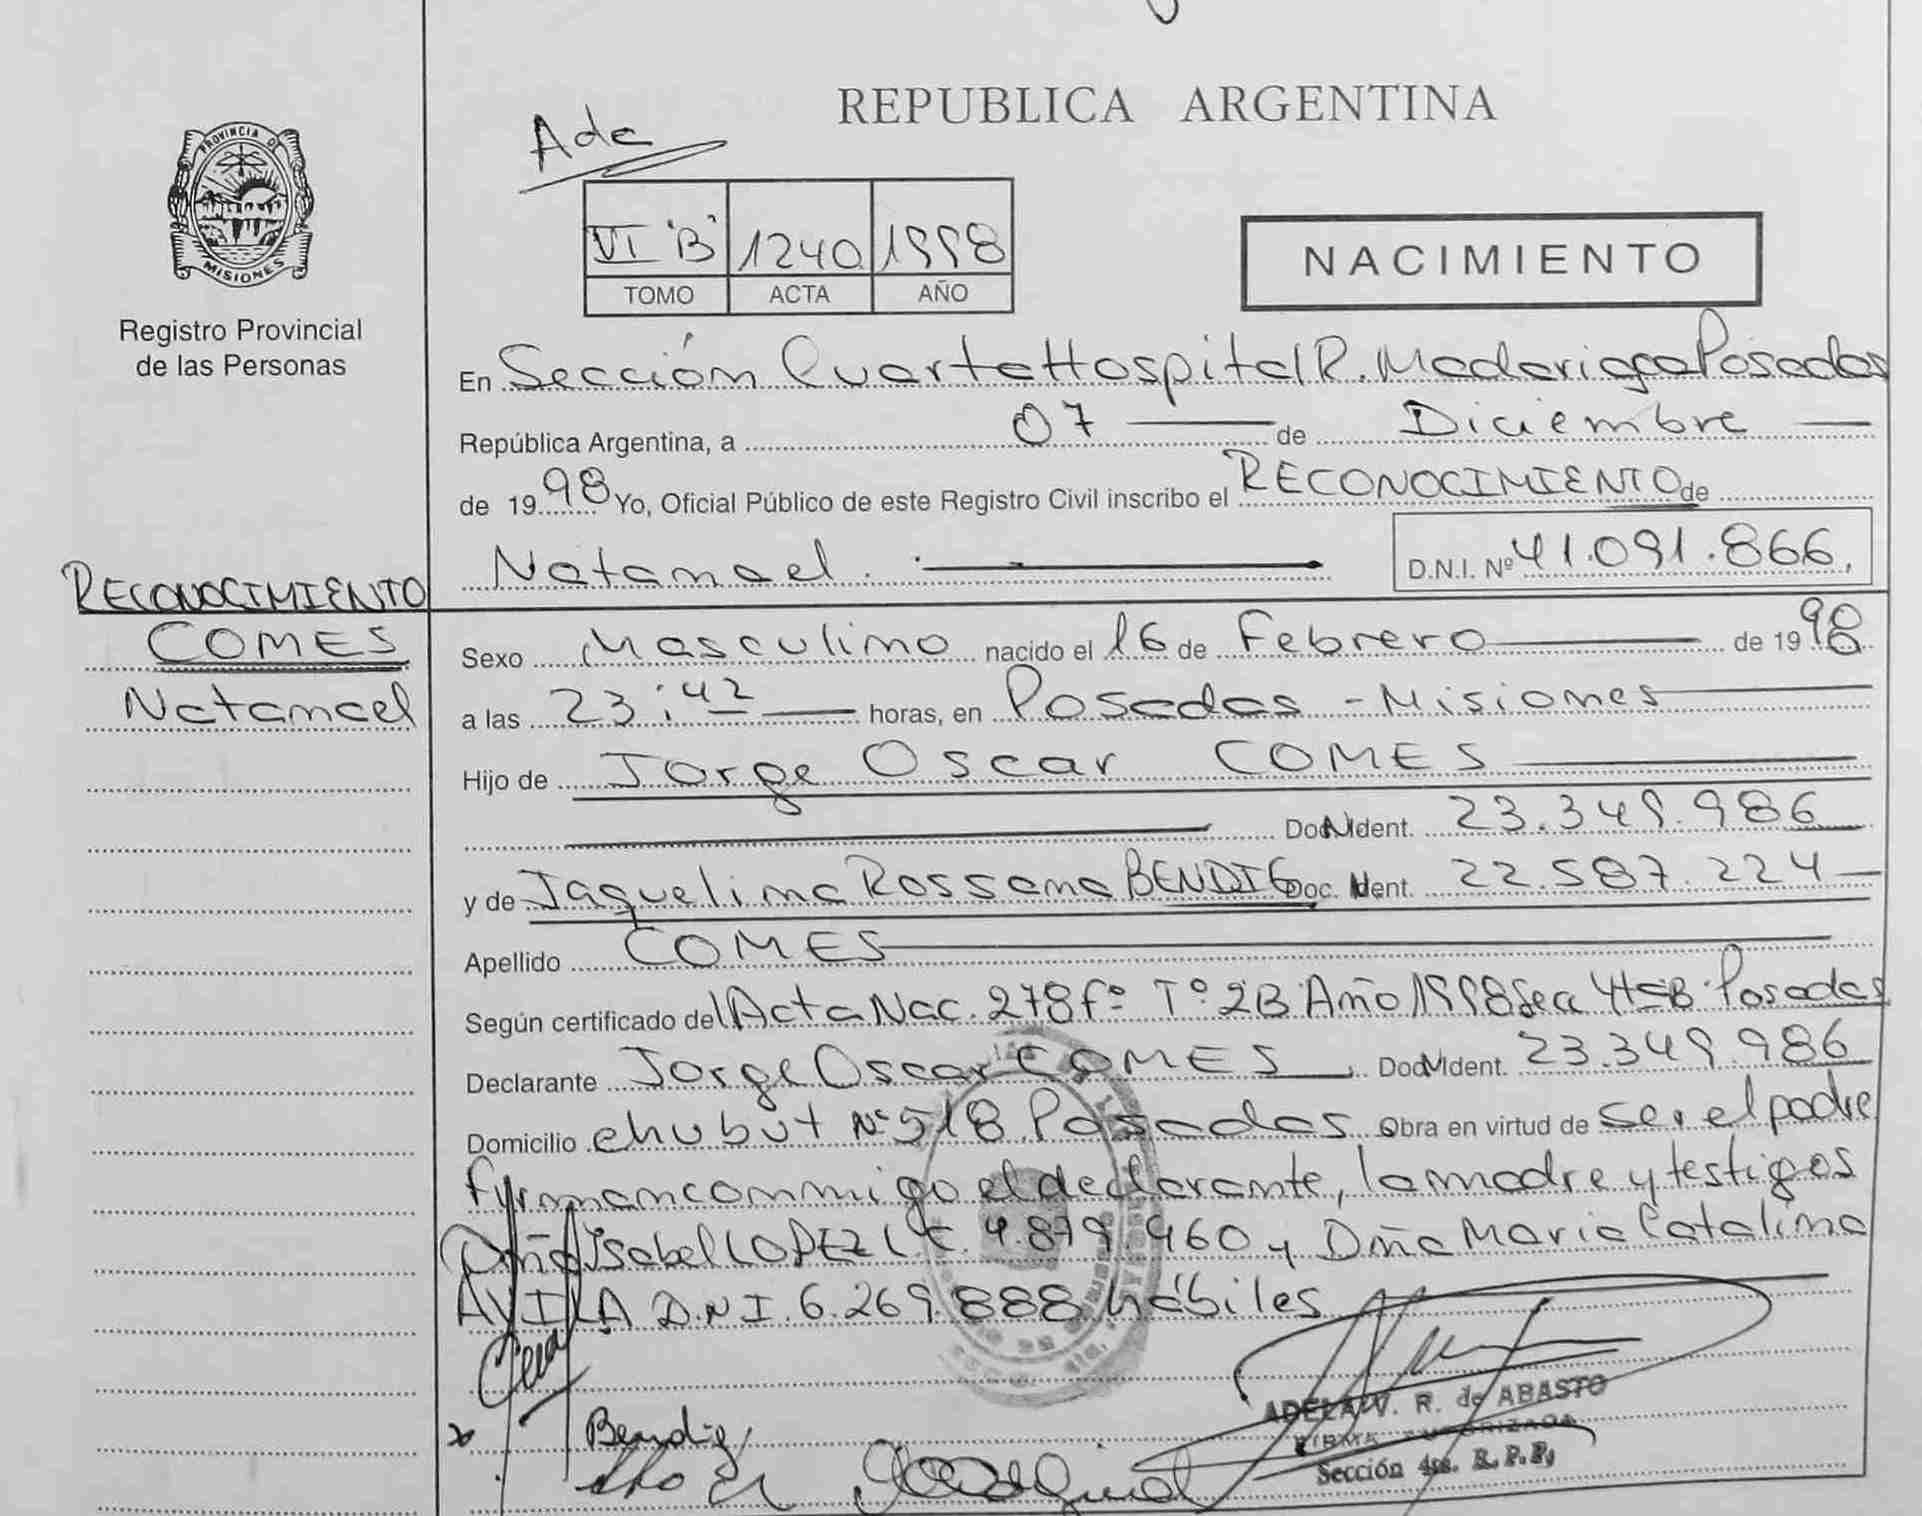 Ade
REPUBLICA ARGENTINA
PROVINCIA DE
MISIONES
Registro Provincial
de las Personas
VI "B" 1240 1998
TOMO ACTA AÑO
NACIMIENTO
En Sección Cuarta Hospital R. Madariaga Posadas
República Argentina, a 07 de Diciembre
de 1998 Yo, Oficial Público de este Registro Civil inscribo el RECONOCIMIENTO de
Natanael. D.N.I. Nº 41.091.866
RECONOCIMIENTO
COMES
Natanael
Sexo Masculino nacido el 16 de Febrero de 1998
a las 23:42 horas, en Posadas - Misiones
Hijo de Jorge Oscar COMES
Doc. Ident. 23.349.986
y de Jaquelina Rossana BENDIG Doc. Ident. 22.587.224
Apellido COMES
Según certificado del Acta Nac. 278 fº Tº 2B Año 1998 Sec 4ta B. Posadas
Declarante Jorge Oscar COMES Doc. Ident. 23.349.986
Domicilio chubut Nº 518 Posadas Obra en virtud de ser el padre
firman conmigo el declarante, la madre y testigos
Dña Isabel LOPEZ L.C. 4.879.460 y Dña Maria Catalina
AVILA D.N.I. 6.269.888 hábiles
Bendig
ADELA V. R. de ABASTO
FIRMA AUTORIZADA
Sección 4ta. R.P.P.